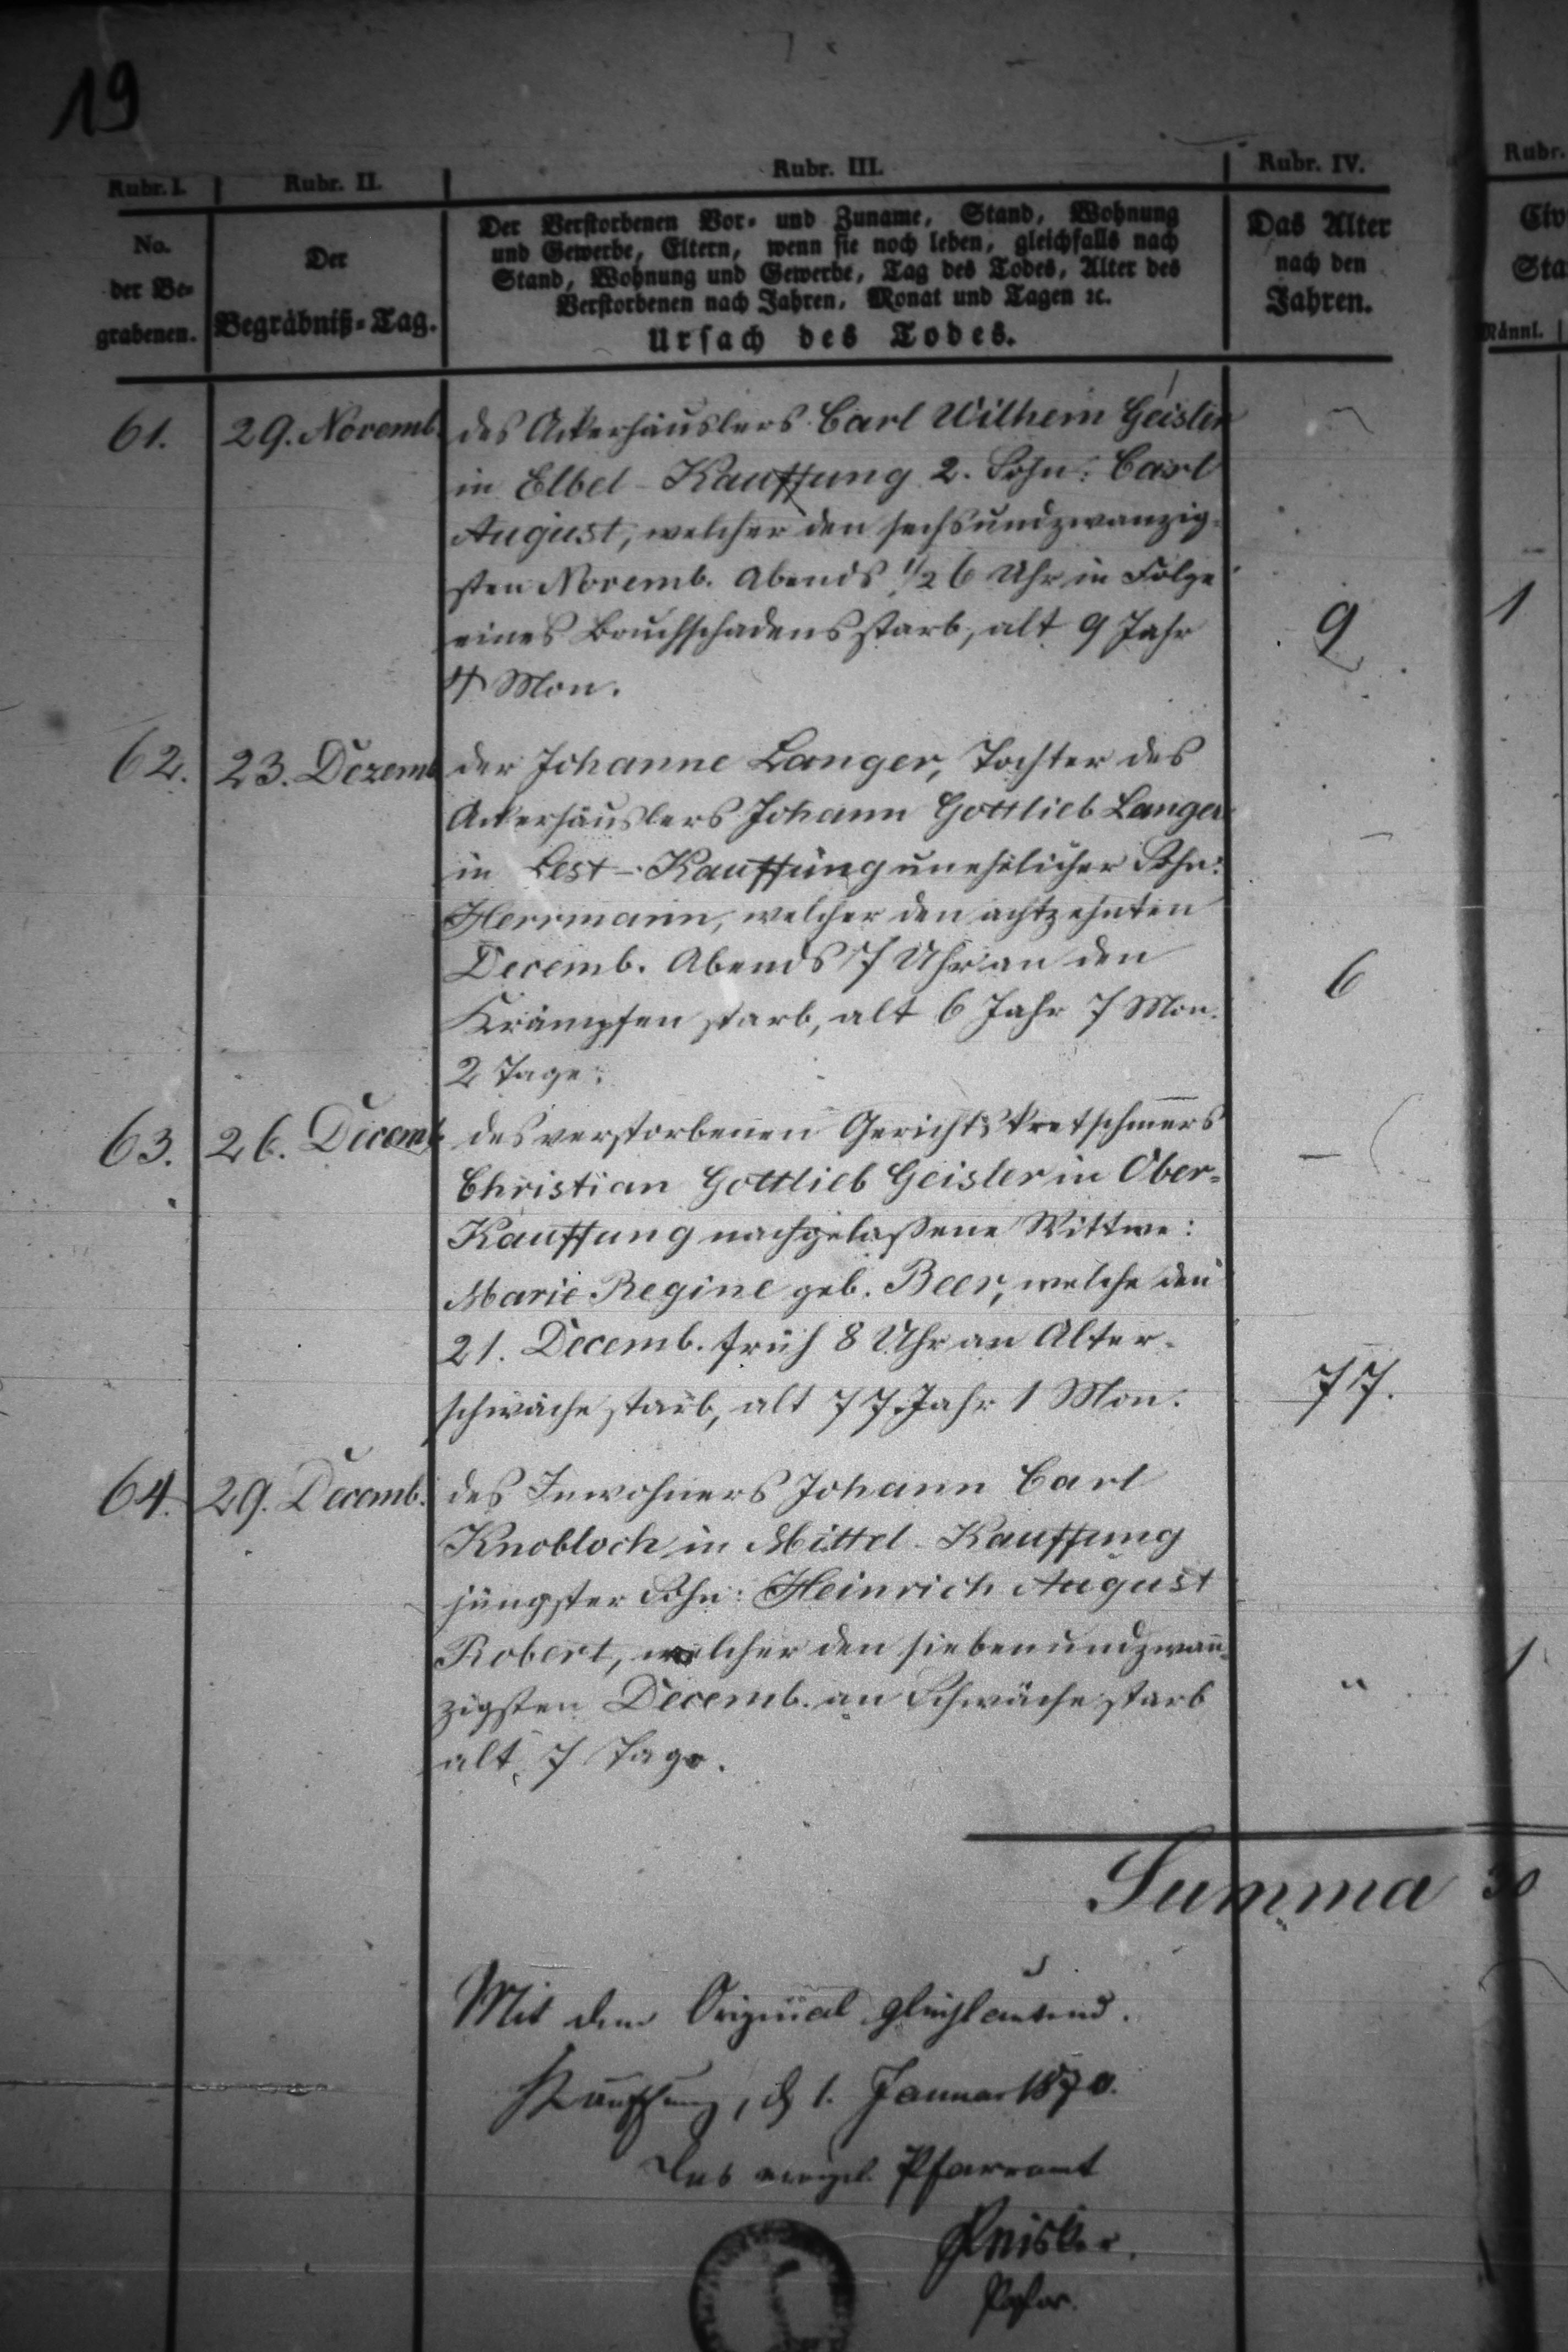 19
Rubr. I. Rubr. II. Rubr. III. Rubr. IV. Rubr.
No.
der Be-
grabenen.
Der
Begräbniß-Tag.
Der Verstorbenen Vor- und Zuname, Stand, Wohnung
und Gewerbe, Eltern, wenn sie noch leben, gleichfalls nach
Stand, Wohnung und Gewerbe, Tag des Todes, Alter des
Verstorbenen nach Jahren, Monat und Tagen ꝛc.
Ursach des Todes.
Das Alter
nach den
Jahren.
Civ
Sta
Männl.
61. 29. Novemb. des Ackerhäuslers Carl Wilhem Geisler
in Elbel-Kauffung 2. Sohn: Carl
August, welcher den sechsundzwanzig-
sten Novemb. Abends 1/2 6 Uhr in Folge
eines Bruchschadens starb, alt 9 Jahr 9 1
4 Mon.
62. 23. Dezemb der Johanne Langer, Tochter des
Ackerhäuslers Johann Gottlieb Langer
in Lest-Kauffung unehelicher Sohn:
Herrmann, welcher den achtzehnten
Decemb. Abends 7 Uhr an den
Krämpfen starb, alt 6 Jahr 7 Mon. 6
2 Tage.
63. 26. Decemb. des verstorbenen Gerichtskretschmers
Christian Gottlieb Geisler in Ober-
Kauffung nachgelaßene Wittwe:
Marie Regine geb. Beer, welche den
21. Decemb. früh 8 Uhr an Alter-
schwäche starb, alt 77 Jahr 1 Mon. 77.
64. 29. Decemb. des Inwohners Johann Carl
Knobloch in Mittel-Kauffung
jüngster Sohn: Heinrich August
Robert, welcher den siebenundzwan- 1
zigsten Decemb. an Schwäche starb "
alt 7 Tage.
Summa 30
Mit dem Original gleichlautend.
Kauffung, d. 1. Januar 1870.
Das evangel. Pfarramt